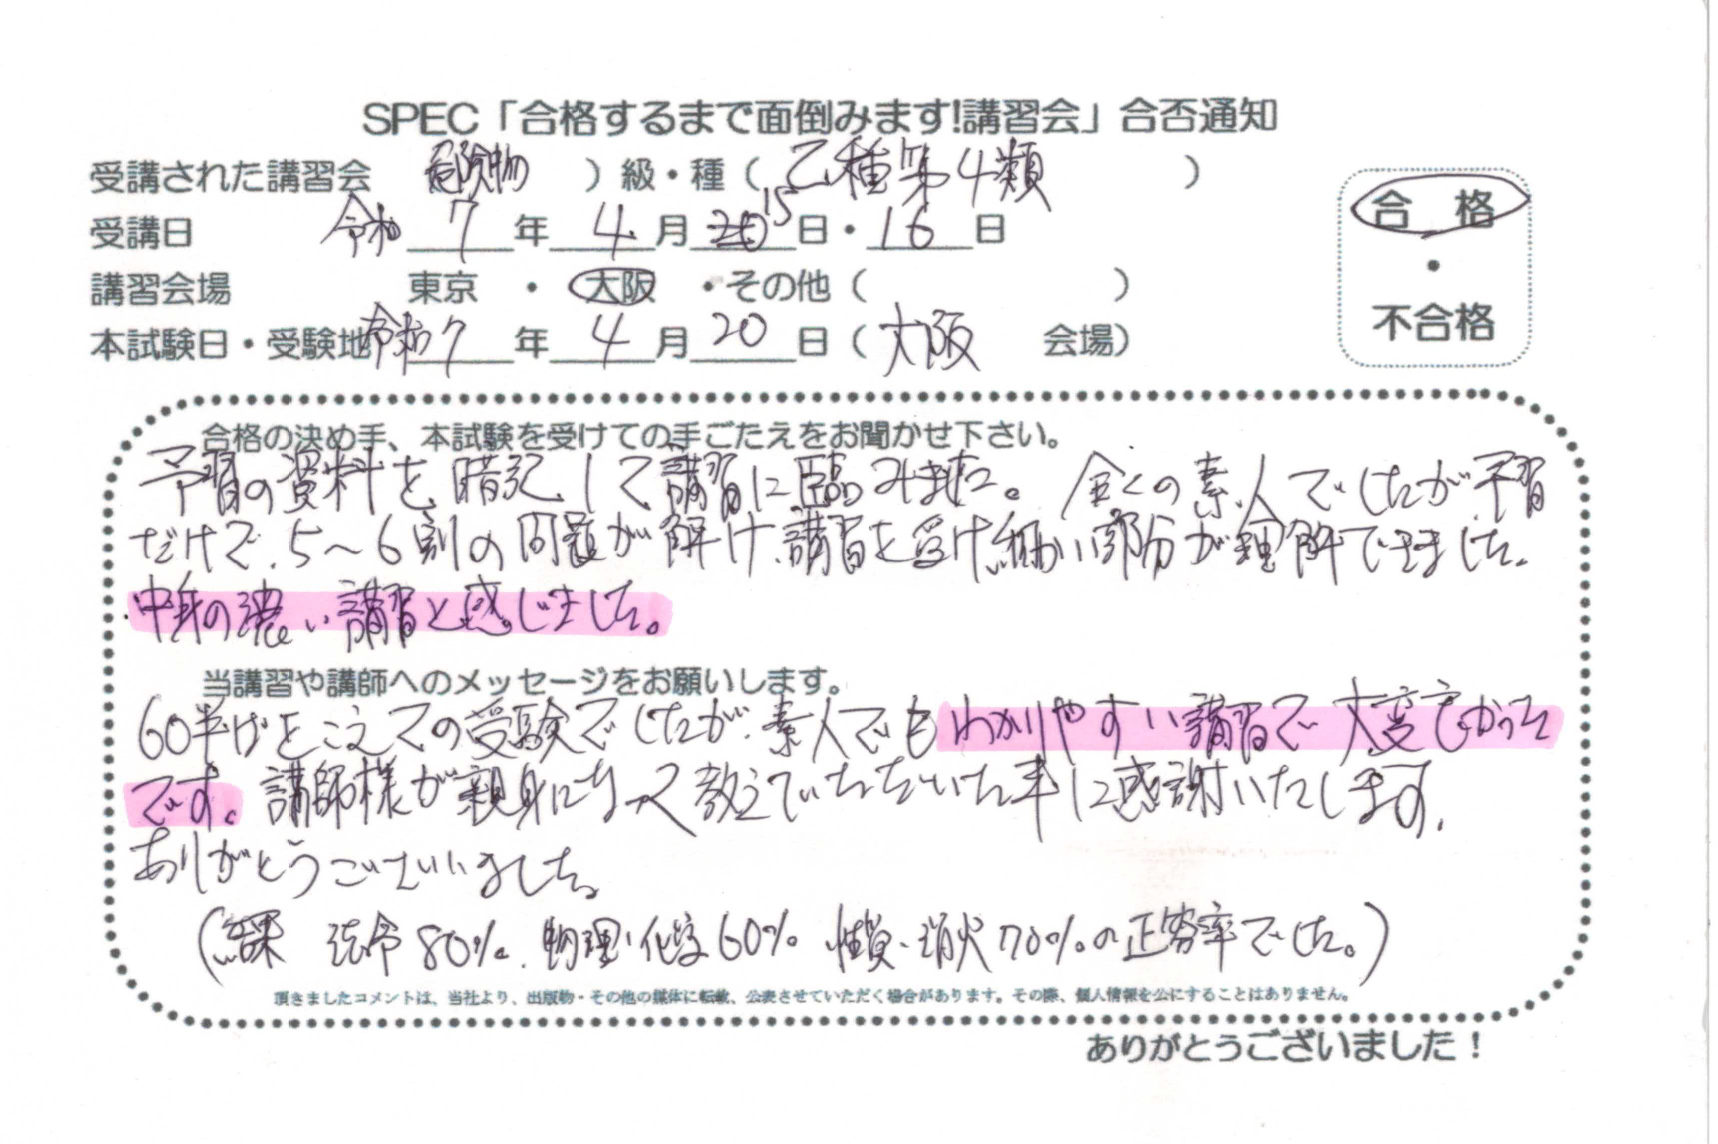 SPEC「合格するまで面倒みます!講習会」合否通知
受講された講習会 危険物 ）級・種（ 乙種第4類 ）
受講日 令和 7 年 4 月 20 15 日・16 日
合 格
・
不合格
講習会場 東京 ・ 大阪 ・その他（ ）
本試験日・受験地 令和7 年 4 月 20 日（ 大阪 会場）
合格の決め手、本試験を受けての手ごたえをお聞かせ下さい。
予習の資料を暗記して講習に臨みました。全くの素人でしたが予習
だけで、5～6割の問題が解け、講習を受け細かい部分が理解できました。
中身の濃い講習と感じました。
当講習や講師へのメッセージをお願いします。
60半ばをこえての受験でしたが、素人でもわかりやすい講習で大変良かった
です。講師様が親身になって教えていただいた事に感謝いたします。
ありがとうございました。
（結果 法令80%、物理・化学60%、性質・消火70%の正答率でした。）
頂きましたコメントは、当社より、出版物・その他の媒体に転載、公表させていただく場合があります。その際、個人情報を公にすることはありません。
ありがとうございました！